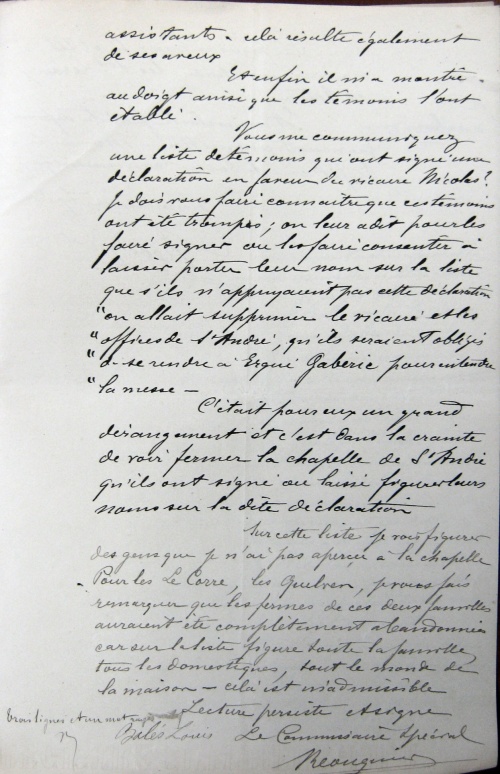 assistants. cela résulte également
de ses aveux
Et enfin il m'a montré
au doigt ainsi que les témoins l'ont
établi.
Vous me communiquez
une liste de témoins qui ont signé une
déclaration en faveur du vicaire Nicolas?
Je dois vous faire connaître que ces témoins
ont été trompés; on leur a dit pour les
faire signer ou les faire consentir à
laisser porter leur nom sur la liste
que s'ils n'appuyaient pas cette déclaration
"on allait supprimer le vicaire et les
"offices de St André, qu'ils seraient obligés
"de se rendre à Ergué Gabéric pour entendre
"la messe —
C'était pour eux un grand
dérangement et c'est dans la crainte
de voir fermer la chapelle de St André
qu'ils ont signé ou laissé figurer leurs
noms sur la dite déclaration
Sur cette liste je vois figurer
des gens que je n'ai pas aperçu à la chapelle
Pour les Le Corre, les Quelven, je vous fais
remarquer que les fermes de ces deux familles
auraient été complètement abandonnées
car sur la liste figure toute la famille,
tous les domestiques, tout le monde de
la maison — cela est inadmissible
Lecture persiste et signe
trois lignes et un mot
Louis Le Commissaire Spécial